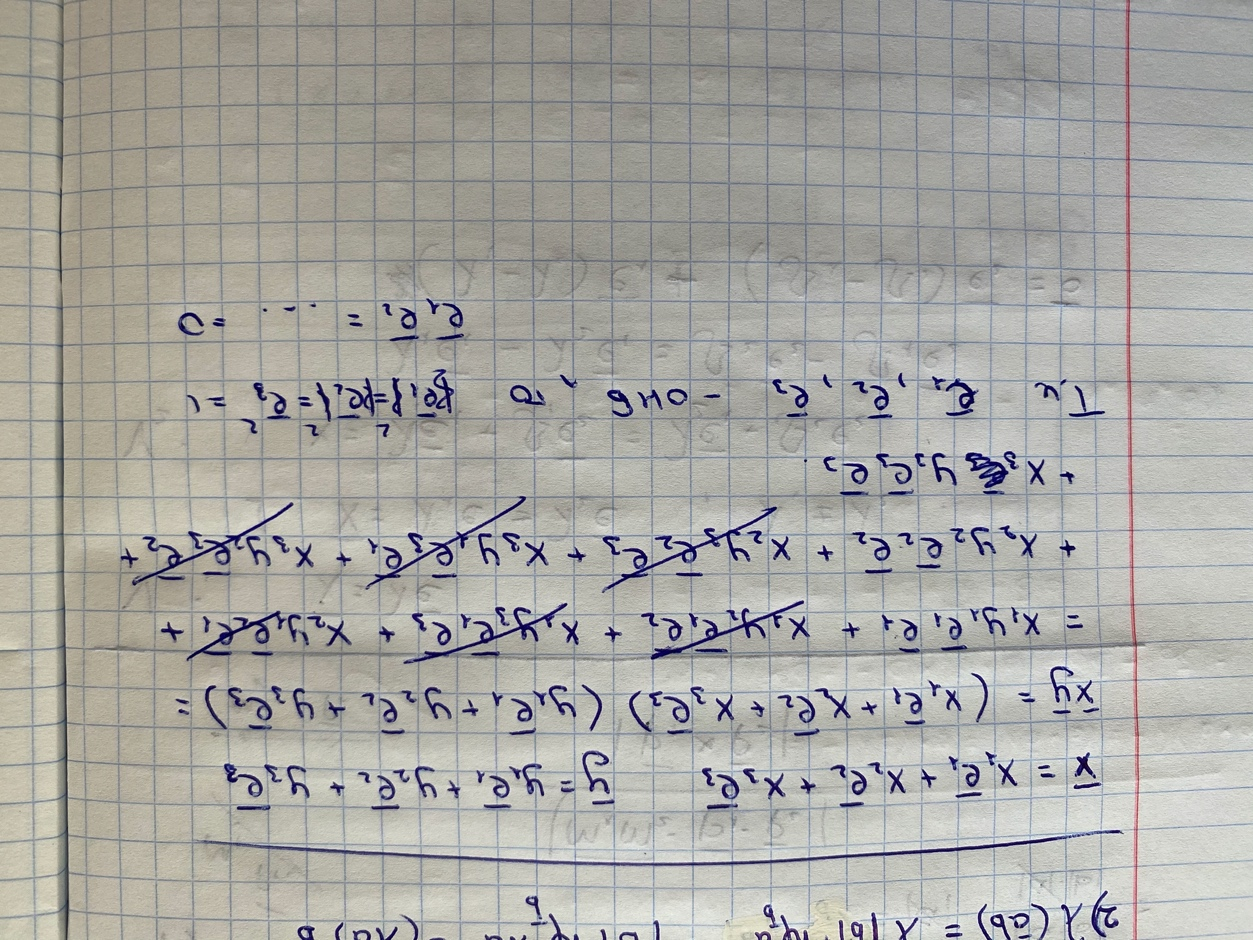 2) λ(ab) = λ|b|
x = x₁e₁ + x₂e₂ + x₃e₃ y = y₁e₁ + y₂e₂ + y₃e₃
xy = (x₁e₁ + x₂e₂ + x₃e₃) (y₁e₁ + y₂e₂ + y₃e₃) =
= x₁y₁e₁e₁ + x₁y₂e₁e₂ + x₁y₃e₁e₃ + x₂y₁e₂e₁ +
+ x₂y₂e₂e₂ + x₂y₃e₂e₃ + x₃y₁e₃e₁ + x₃y₂e₃e₂ +
+ x₃ y₃e₃e₃
Т.к e₁, e₂, e₃ - ОНБ, то e₁² = e₂² = e₃² = 1
e₁e₂ = ... = 0